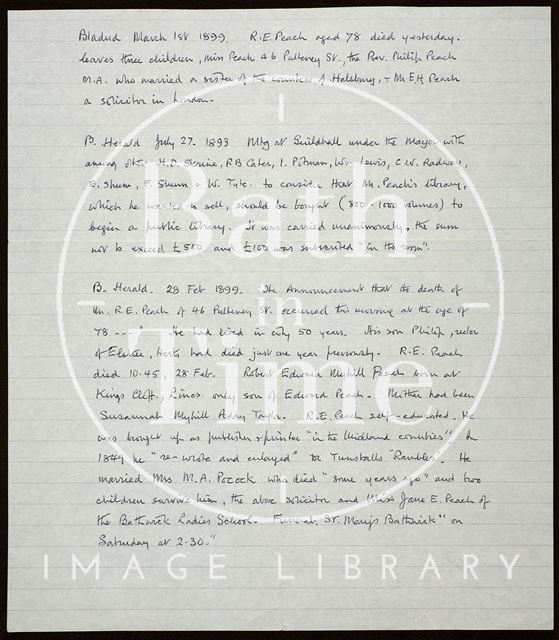 Bladud March 1st 1899. R.E. Peach aged 78 died yesterday.
leaves three children, Miss Peach 46 Pulteney St., the Rev. Philip Peach
M.A. who married a sister of the Countess of Halsbury, + Mr E.H. Peach
a solicitor in London.
B. Herald July 27. 1893 Mtg at Guildhall under the Mayor with
among others H.D. Skrine, R.B. Cater, I. Pitman, Wm Lewis, C.W. Radway,
E. Shum, F. Shum + W. Tyte. to consider that Mr. Peach's library,
which he wanted to sell, should be bought (800-1000 volumes) to
begin a public library. It was carried unanimously, the sum
not to exceed £500 and £100 was subscribed "in the room".
B. Herald. 28 Feb 1899. The Announcement that the death of
Mr. R.E. Peach of 46 Pulteney St. occurred this morning at the age of
78 ---" He had lived in city 50 years. His son Philip, rector
of Elstree, Herts, had died just one year previously. R.E. Peach
died 10.45 28 Feb. Robert Edward Myhill Peach born at
Kings Cliff, Lincs. only son of Edward Peach. Mother had been
Susannah Myhill Taylor. R.E. Peach self-educated. He
was brought up as publisher + printer "in the Midland counties". In
1849 he "re-wrote and enlarged" the Tunstalls Rambles. He
married Mrs M.A. Pocock who died "some years ago" and two
children survive him, the above solicitor and Miss Jane E. Peach of
the Bathwick Ladies School. Funeral, St. Mary's Bathwick" on
Saturday at 2.30."
Bath
in
Time
IMAGE LIBRARY